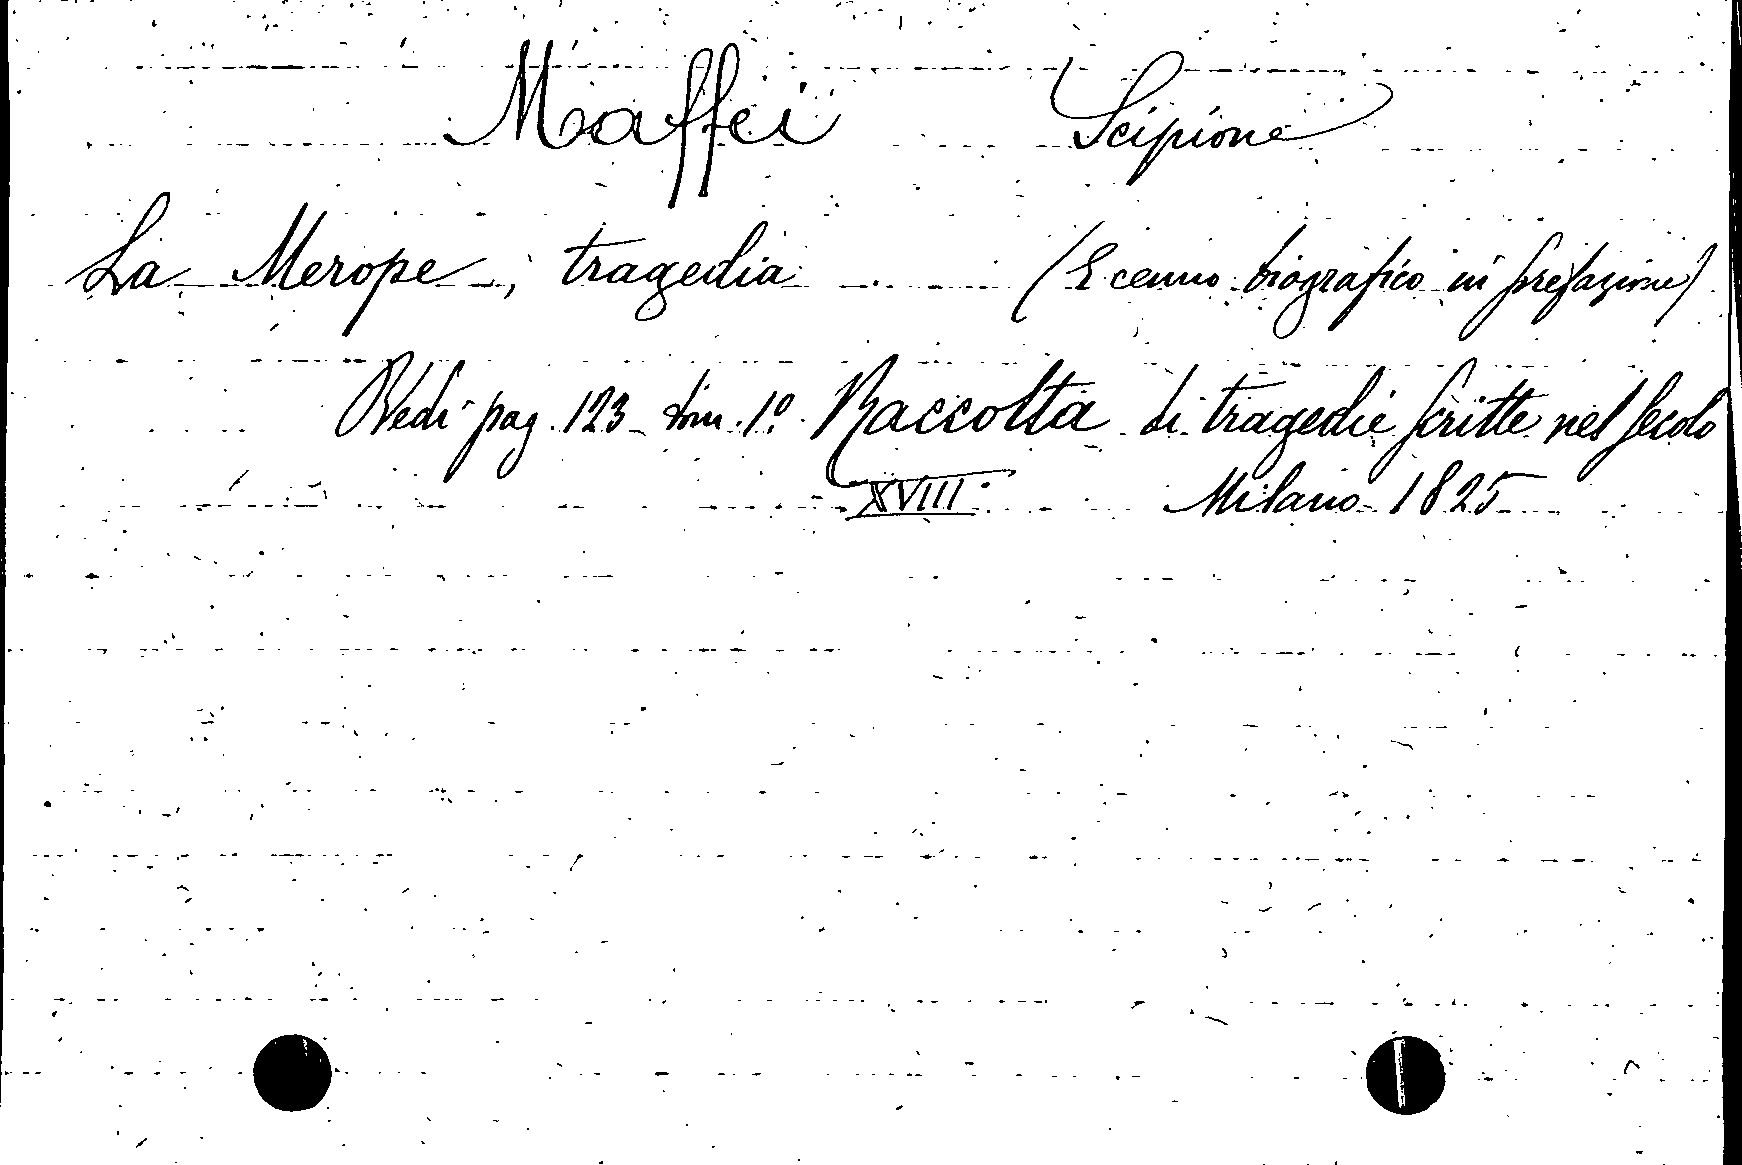 Maffei Scipione
La Merope, tragedia (E cenno biografico in prefazione)
Vedi pag. 123 tom. 1º Raccolta di tragedie scritte nel secolo
XVIII. Milano 1825